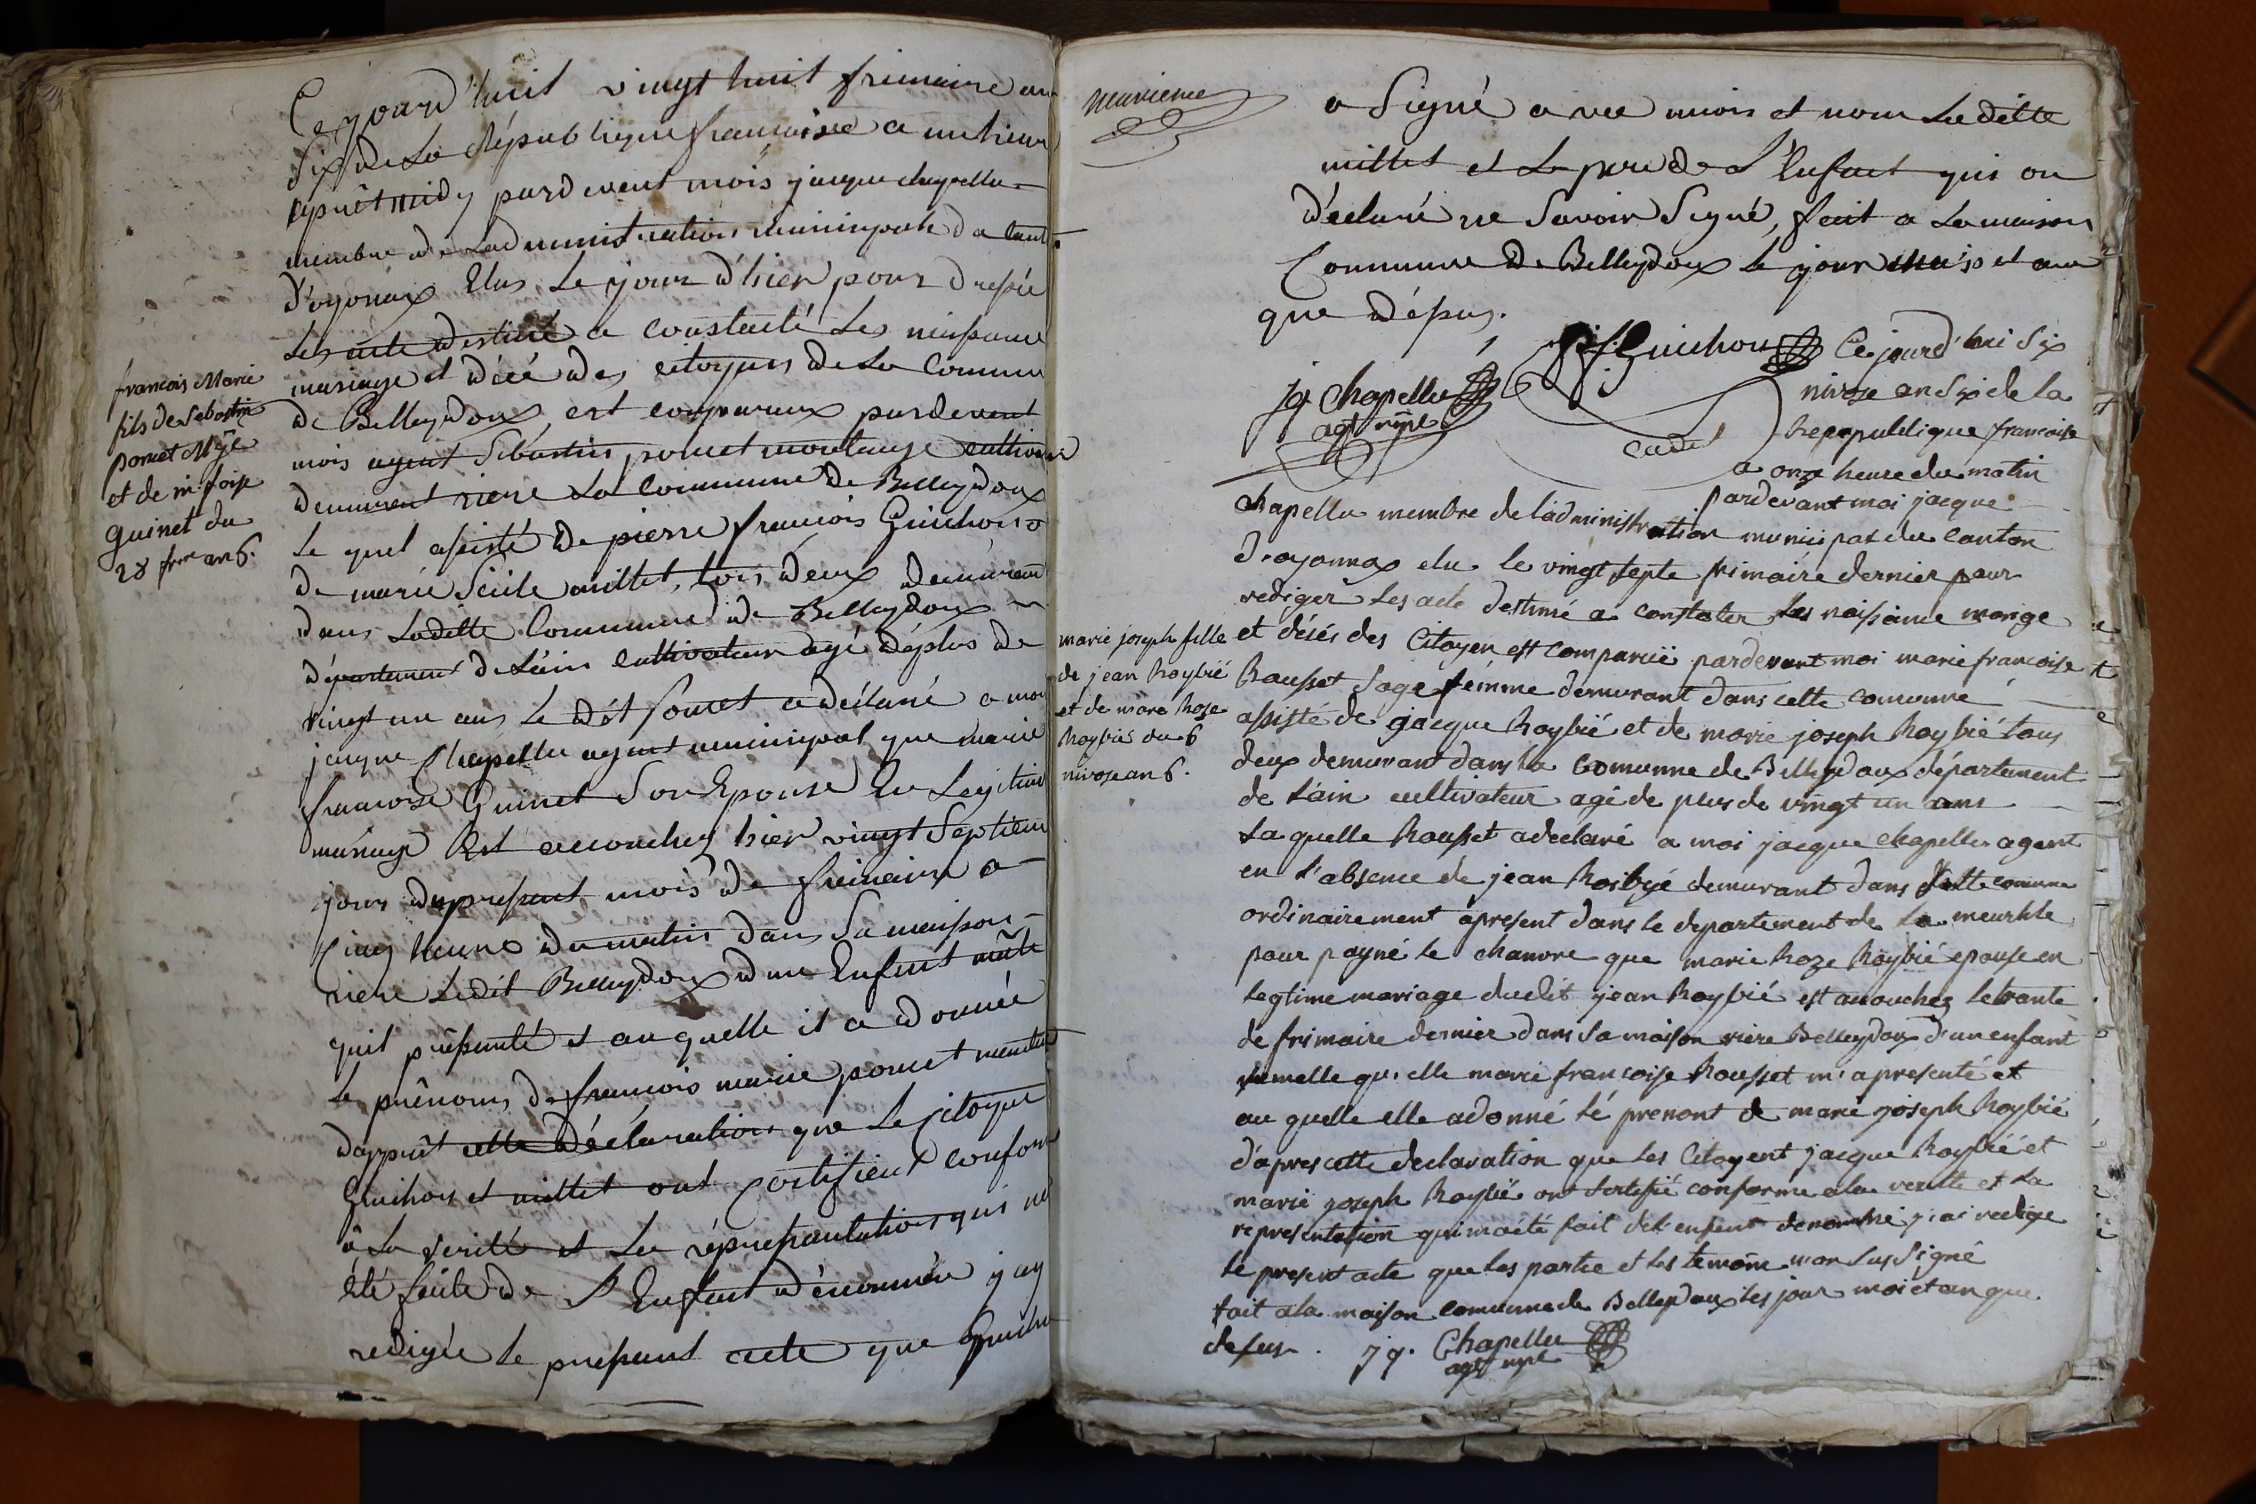 Ce jourd'huit vingt huit frimaire an
six de La République francaisse a une heure
aprêt midy pardevent mois jacque chapellu
membre de Ladministration municipale da cant
D'oyonax Elus Le jour d'hier pour dressée
Les acte destiné a constaité Les naissance
mariage et décé des citoyens de La Commune
de Belleydoux, est compareux pardevent
mois agent Sébastin poncet montange cultivateur
demeurent riere La commune de Belleydoux
Le quel assisté de pierre francois Guichon
de marie Sicile millet, tois deux demeurant
dans Laditte Commune de Belleydoux
département de Lain cultivateur agé déplus de
vingt un ans Le dét Poncet a déclaré a moi
jacque Chapellu agent municipal que marie
francoise Guinet Son Epouse En Legitime
mariage Est accouchez hier vingt Septieme
jours du present mois de frimaire a
Cinq heure du matin dans Sa maisson
riere Ledit Belleydoux d'un Enfant mâle
quil présenté et au quelle il a donnée
Le prénoms de francois marie poncet
dapprêt cette Déclaration que Le Citoyen
Guichon et millet ont Certifient conforme
à La verité et La répresentation qui
Eté faite de L'Enfant dénommée j'ay
redigée Le present acte que Guichon
francois Marie
fils de Sebastin
poncet Mge
et de m. foise
guinet du
28 frre an 6.
a Signé avec mois et nom Laditte
millet et Le pere de L'Enfant qui on
déclaré ne Savoir Signé, fait a La maison
Commune de Belleydoux Le jour mois et an
que dépus.
jq Chapellu
agt mpl
P. f. Guichon
Cadet
Ce jourd'hui six
nivoze an six de la
republique francoise
a onze heure du matin
pardevant moi jacque
chapellu membre de l'administration municipat du canton
d'oyonnax elu le vingt septe frimaire dernier pour
rediger les acte destiné a constater les naissance marige
et désés des Citoyen est comparuë pardevant moi marie francoise
Rousset Sage femme demurant dans cette comunne
assisté de jacque Roybié et de marie joseph Roybié tous
deux demurant dans la Comunne de Belleydoux département
de l'ain cultivateur agé de plus de vingt un ans
La quelle Rousset a declaré a moi jacque chapellu agent
en l'absence de jean Roibyé demurant dans comune
ordinairement apresent dans le departement de la meurhte
pour payné le chanvre que marie Roze Roybié epouse en
legtime mariage dudit jean Roybié est acouchez letrante
de frimaire dernier dans sa maison riere Belleydoux d'un enfant
femelle qu'elle marie francoise Rousset m'a presenté et
au quelle elle a donné lé prenont de marie joseph Roybié
d'apres cette declaration que les Citoyent jacque Roybié et
marie joseph Roybié ont sertifié conforme ala verité et La
representation qui m'a été fait del enfent denommé j'ai redige
le present acte que les partie et les temoin n'on sus signé
fait ala maison comunne de Belleydoux les jour moi et an que
desus. jq. Chapellu
agt mpl
marie joseph fille
de jean Roybié
et de marie Roze
Roybié du 6
nivose an 6.